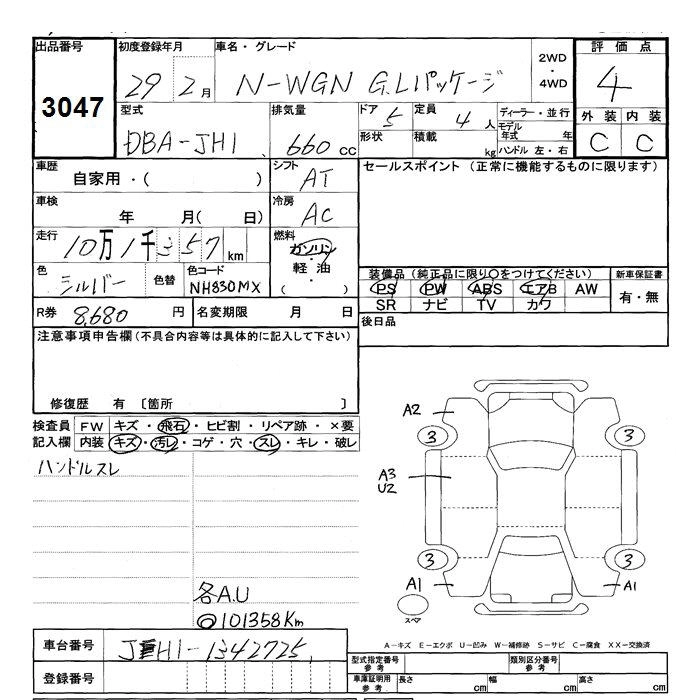 出品番号 初度登録年月 車名・グレード 2WD・4WD 評価点
3047 29 2月 N-WGN G.Lパッケージ 4
型式 排気量 ドア 5 定員 4人 ディーラー・並行 外装 内装
DBA-JH1 660cc 形状 積載 kg モデル年式 年 ハンドル 左・右 C C
車歴 シフト セールスポイント (正常に機能するものに限ります)
自家用・( ) AT
車検 冷房
年 月( 日) AC
走行 燃料
10万1千357km ガソリン・軽油・( )
色 シルバー 色替 色コード NH830MX
装備品 (純正品に限り○をつけてください) 新車保証書
PS PW ABS エアB AW 有・無
SR ナビ TV カワ
R券 8,680円 名変期限 月 日 後日品
注意事項申告欄 (不具合内容等は具体的に記入して下さい)
修復歴 有 〔箇所 〕
検査員 FW キズ・飛石・ヒビ割・リペア跡・×要
記入欄 内装 キズ・汚レ・コゲ・穴・スレ・キレ・破レ
ハンドルスレ
各A.U
◎101358Km
A2
3 3
A3
U2
3 3
A1 A1
スペア
A-キズ E-エクボ U-凹み W-補修跡 S-サビ C-腐食 XX-交換済
車台番号 JH1-1342725
型式指定番号 参考 類別区分番号 参考
登録番号 車庫証明用 参考 長さ cm 幅 cm 高さ cm